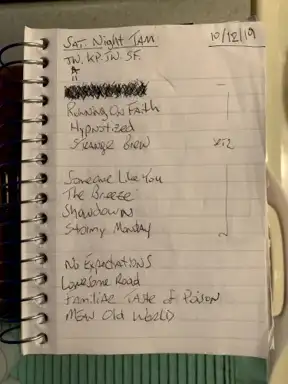 SAT. Night JAM 10/12/19
JW. KP. JW. SF.
A
Running On Faith
Hypnotized
STRANGE BREW
Someone Like You
The Breeze
Showdown
Stormy Monday
No Expectations
Lonesome Road
Familiar Taste of Poison
MEAN Old World